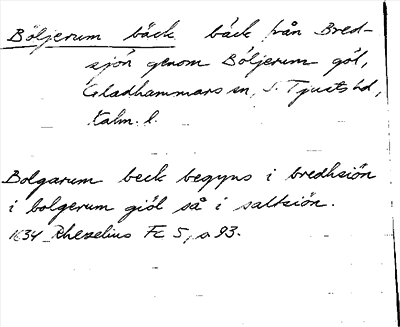 Böljerum bäck bäck från Bred-
sjön genom Böljerum göl,
Gladhammars sn, S. Tjusts hd,
Kalm. l.
Bolgarum beck begyns i bredhsiön
i bolgerum giöl så i saltsiön.
1634 Rhezelius Fc 5, s 93.